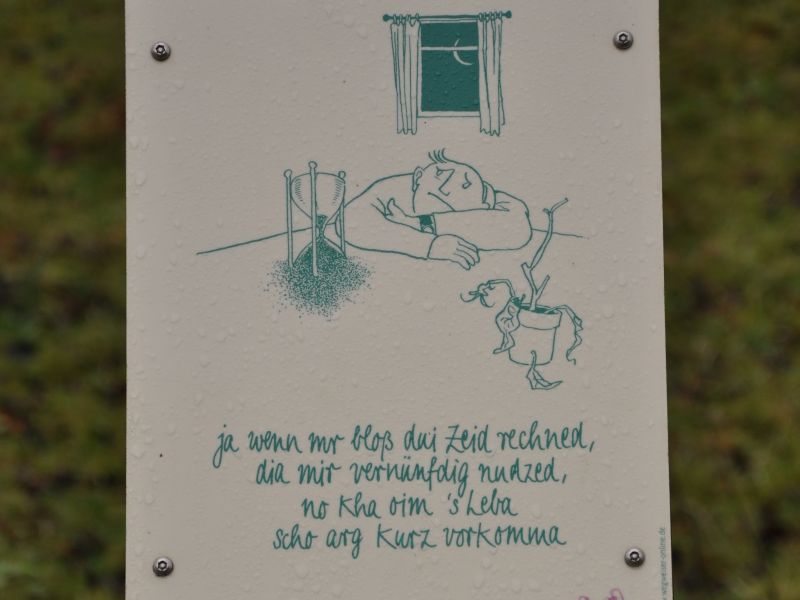 ja wenn mr bloß dui Zeid rechned,
dia mir vernünfdig nudzed,
no kha oim 's Leba
scho arg kurz vorkomma
wegweiser-online.de